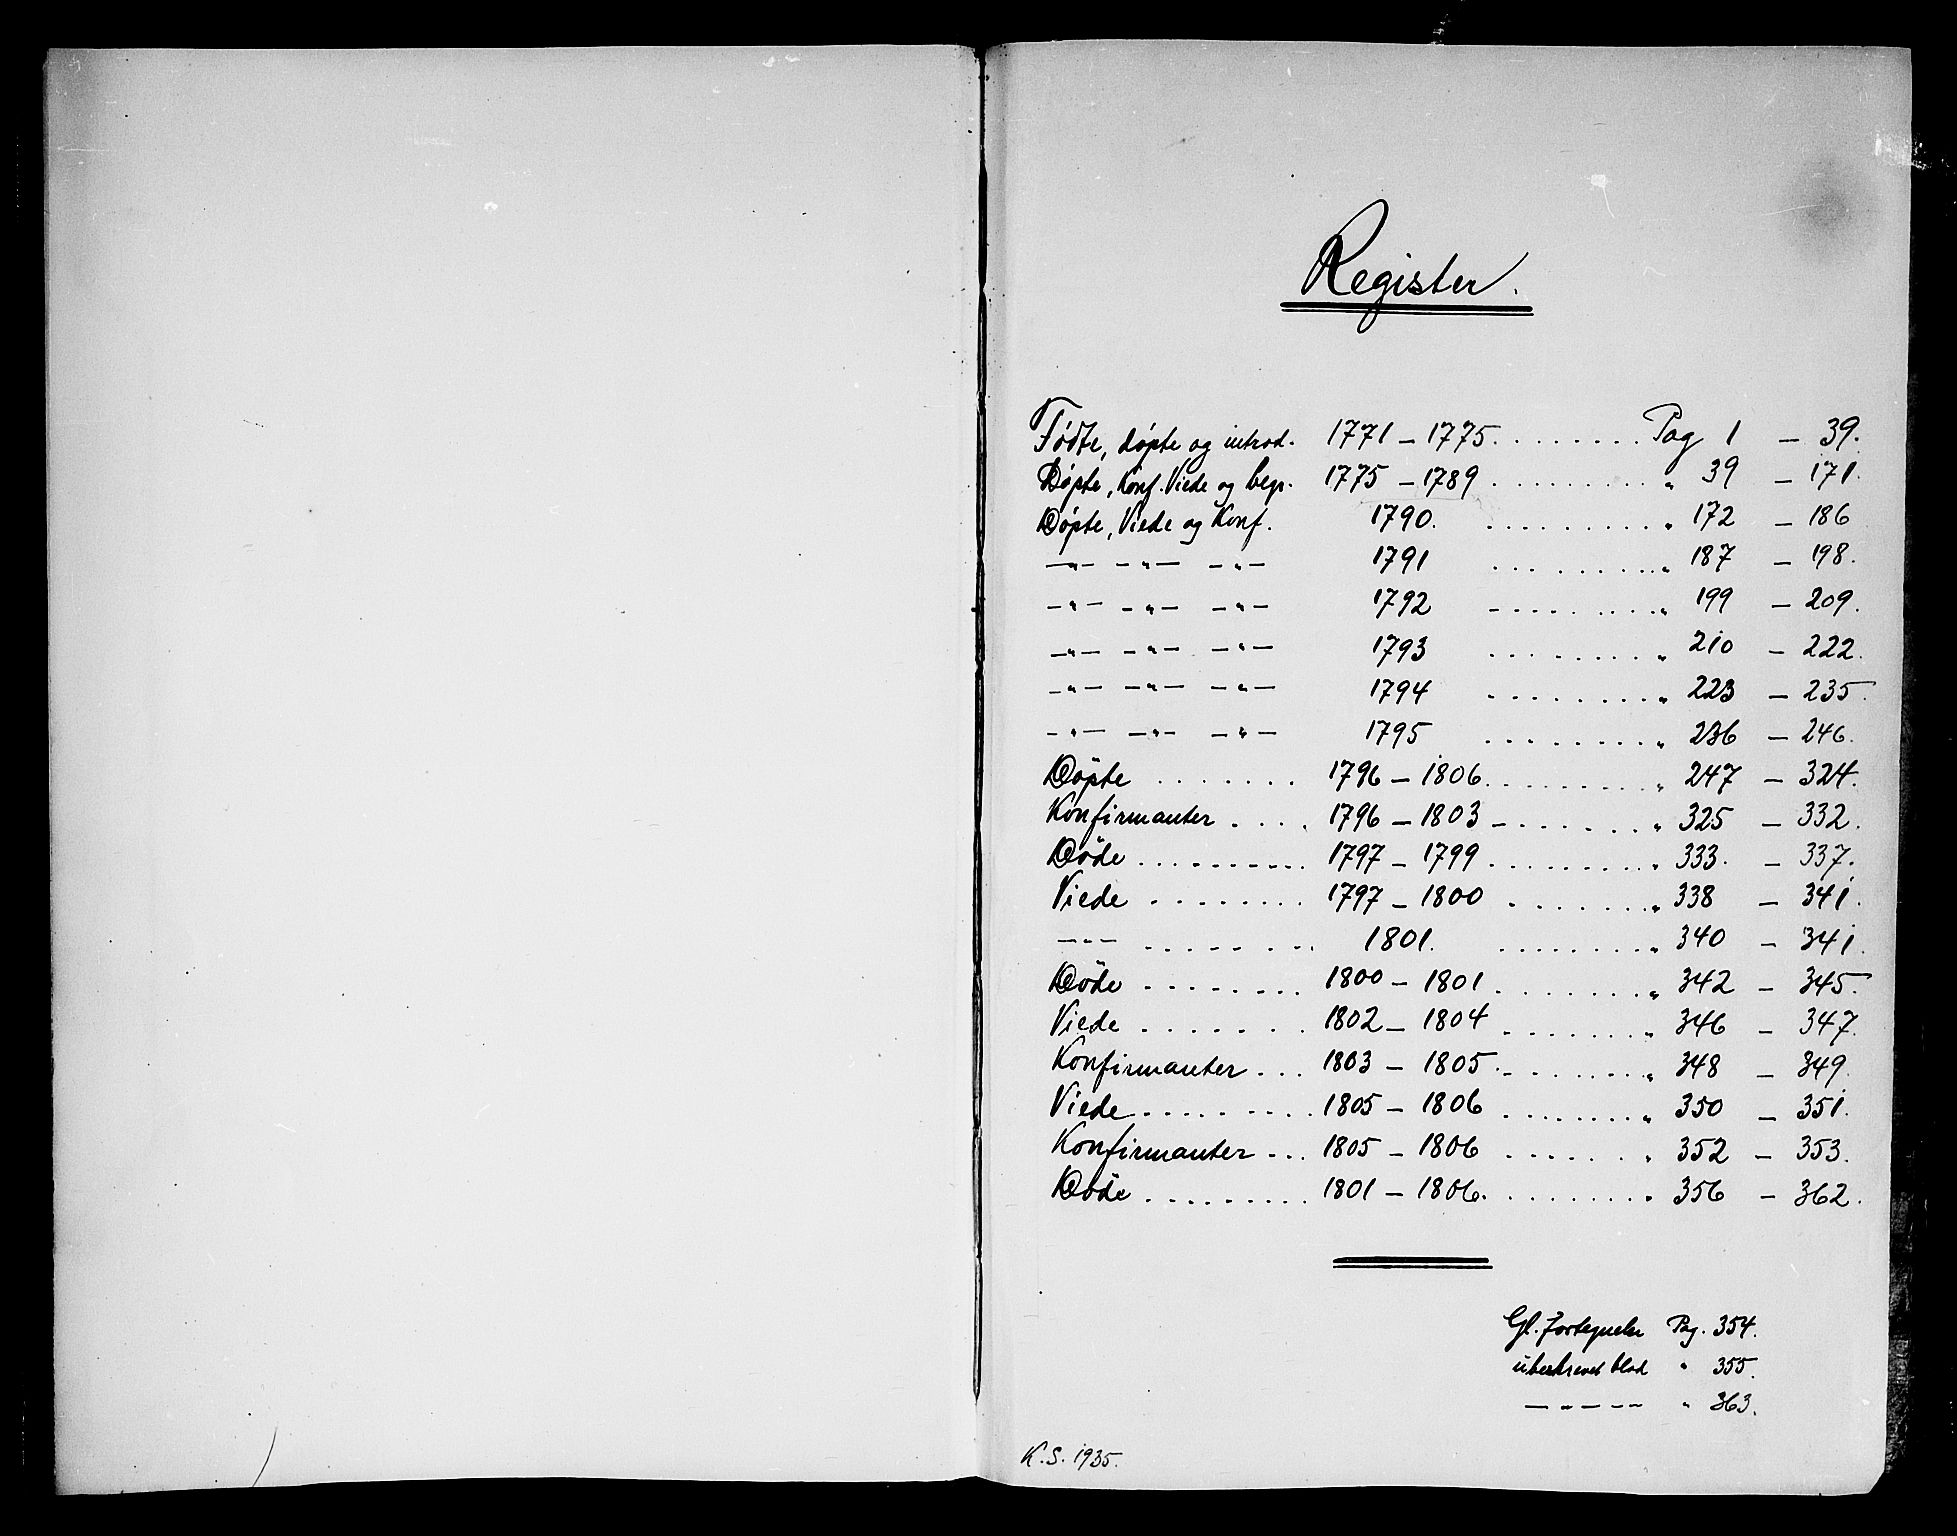 Register.
Fødte, døpte og introd. 1771 – 1775. . . . . . . . Pag 1 – 39.
Døpte, Konf. Viede og begr. 1775 – 1789 . . . . . . . . . " 39 – 171.
Døpte, Viede og Konf. 1790. . . . . . . . . . " 172 – 186
—"— —"— —"— 1791 . . . . . . . . . " 187 – 198.
—"— —"— —"— 1792 . . . . . . . . . " 199 – 209.
—"— —"— —"— 1793 . . . . . . . . . " 210 – 222.
—"— —"— —"— 1794 . . . . . . . . . " 223 – 235.
—"— —"— —"— 1795 . . . . . . . . . " 236 – 246.
Døpte . . . . . . . 1796 – 1806. . . . . . . . . " 247 – 324.
Konfirmanter . . . . 1796 – 1803 . . . . . . . . " 325 – 332.
Döde . . . . . . . . . 1797 – 1799 . . . . . . . . . " 333. – 337.
Viede . . . . . . . . 1797 – 1800 . . . . . . . . " 338 – 341.
—"— . . . . . . . . 1801. . . . . . . . . " 340 – 341.
Döde . . . . . . . . 1800 – 1801 . . . . . . . . " 342 – 345.
Viede . . . . . . . . 1802 – 1804 . . . . . . . . " 346 – 347.
Konfirmanter . . . 1803 – 1805 . . . . . . . . " 348 – 349.
Viede . . . . . . . . . 1805 – 1806 . . . . . . . . " 350 – 351.
Konfirmanter . . . 1805 – 1806 . . . . . . . " 352 – 353.
Döde . . . . . . . . . 1801 – 1806. . . . . . . . . " 356 – 362.
Gl. fortegnelse Pag. 354.
ubeskrevet blad " 355.
— – – – — " 363.
K.S. 1935.